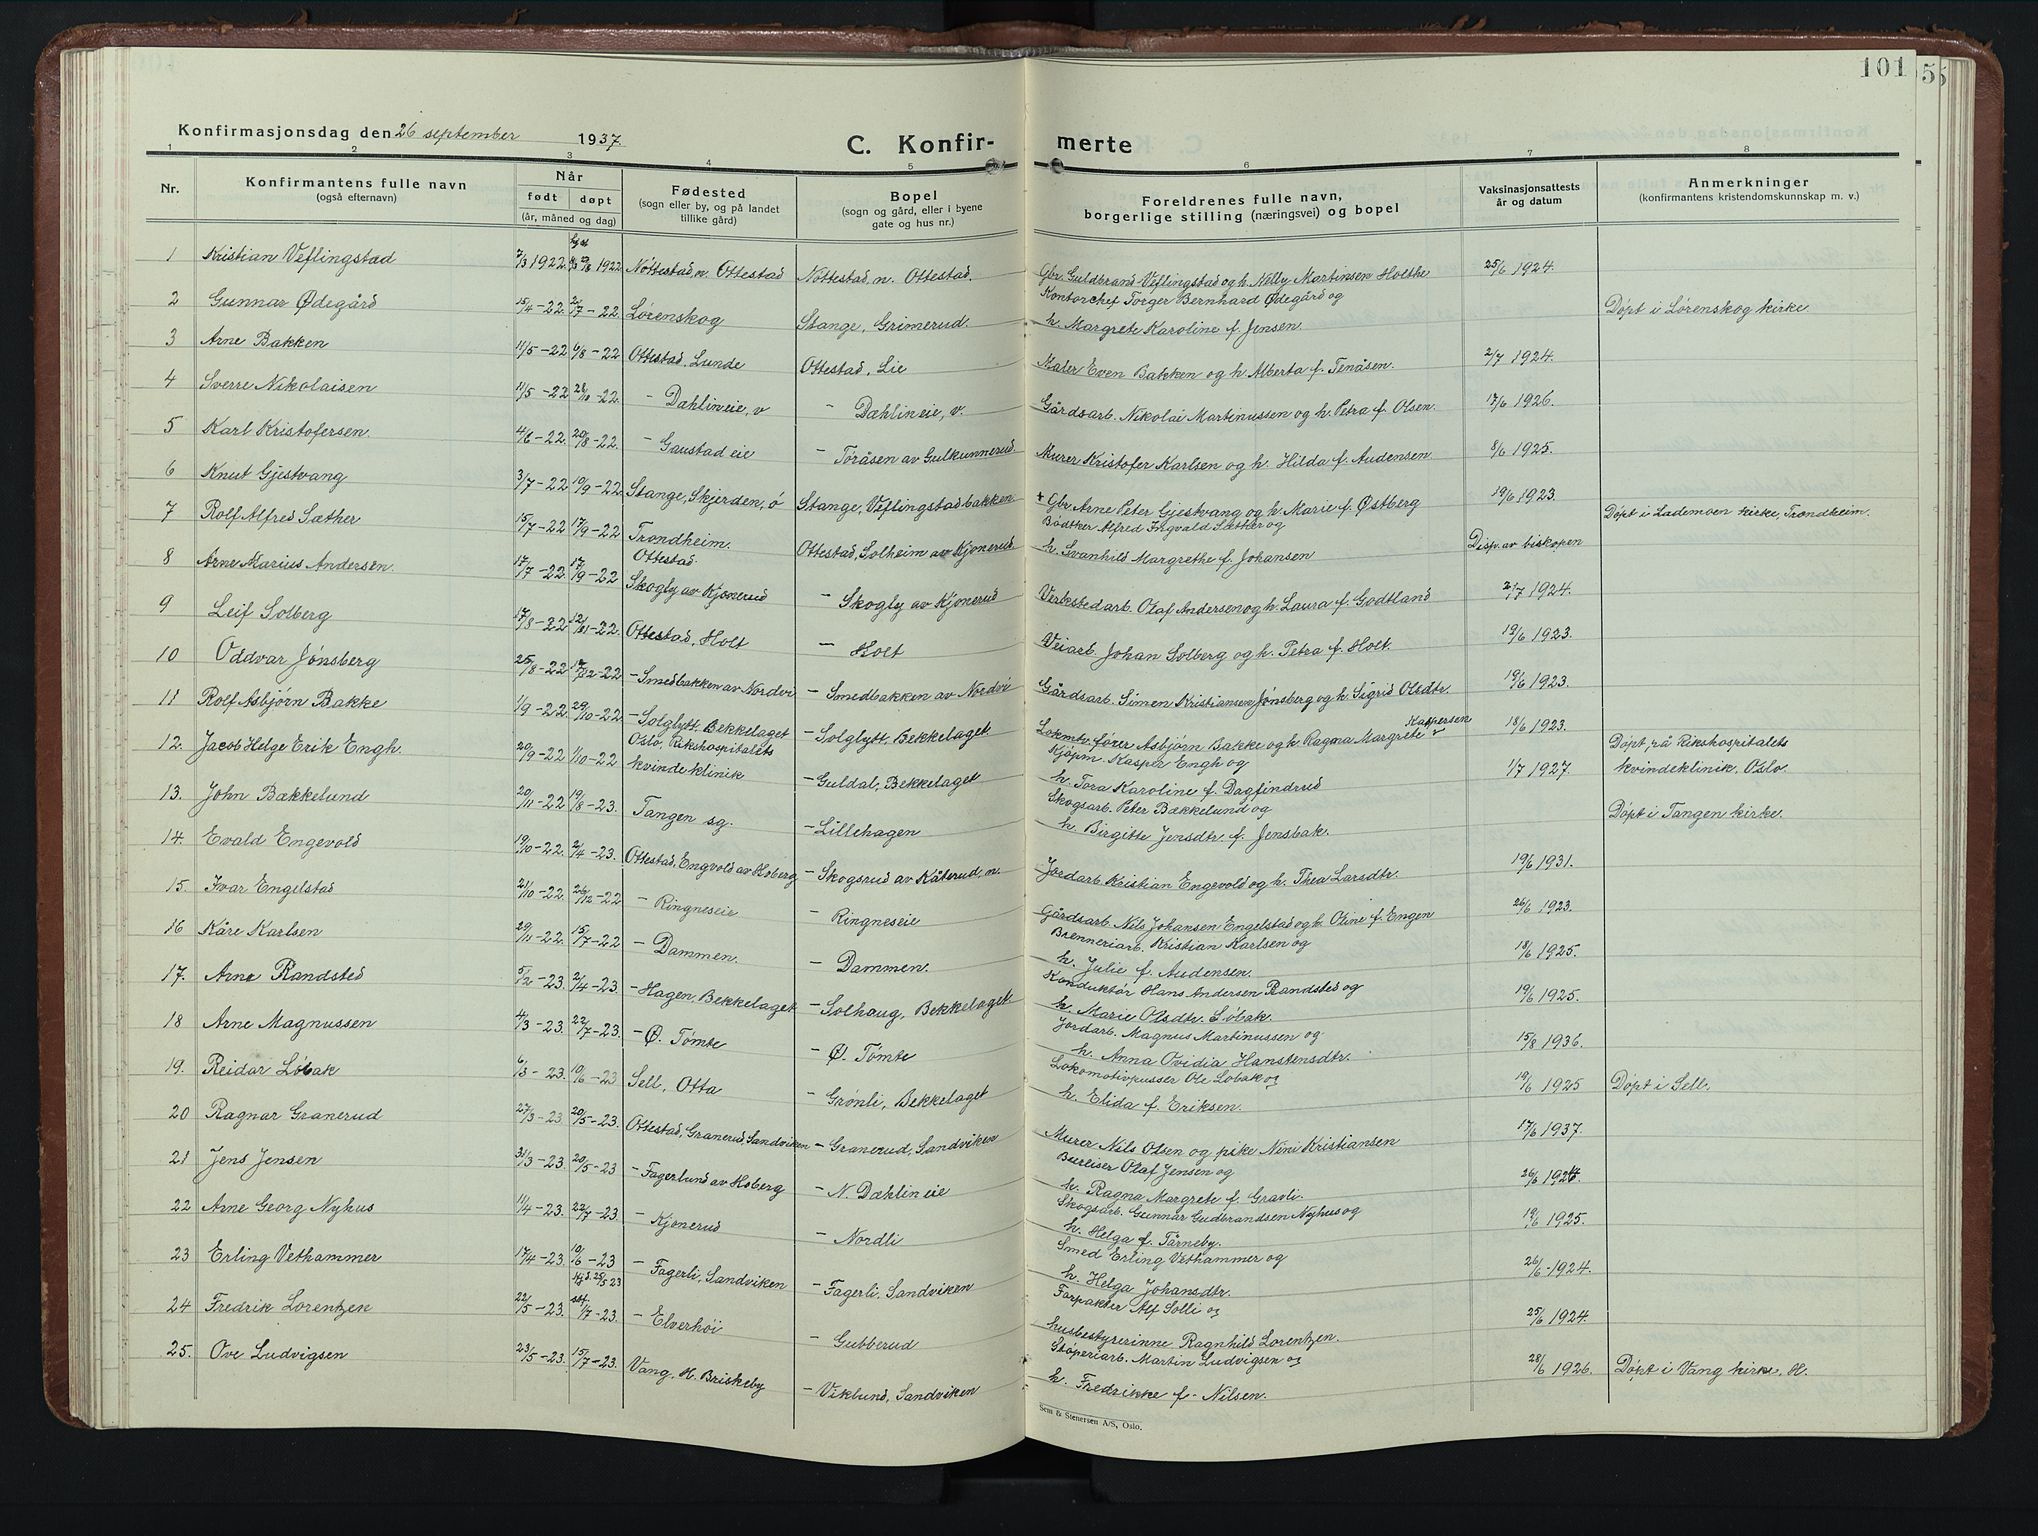 101
5
Konfirmasjonsdag den 26 september 1937
C. Konfir- merte
1 2 3 4 5 6 7 8
Nr. Konfirmantens fulle navn (også efternavn) Når født døpt (år, måned og dag) Fødested (sogn eller by, og på landet tillike gård) Bopel (sogn og gård, eller i byene gate og hus nr.) Foreldrenes fulle navn, borgerlige stilling (næringsvei) og bopel Vaksinasjonsattests år og datum Anmerkninger (konfirmantens kristendomskunnskap m. v.)
1 Kristian Veflingstad 7/3 1922 20/8 1922 Nøttestad, n. Ottestad Nøttestad, n. Ottestad. Gbr. Guldbrand Veflingstad og h. Nelly Martinsen Holthe 25/6 1924.
2 Gunnar Ødegård 15/4-22. 2/7-22. Lørenskog Stange, Grimerud. Kontorchef Torger Bernhard Ødegård og
h. Margrete Karoline f. Jensen. Døpt i Lørenskog kirke
3 Arne Bakken 11/5-22 6/8-22 Ottestad, Lunde Ottestad, Lie Maler Even Bakken og h. Alberta f. Tenåsen. 2/7 1924.
4 Sverre Nikolaisen 11/5-22 28/10-22. - Dæhlin eie, v - Dæhlin eie, v. Gårdsarb. Nikolai Martinussen og h. Petra f. Olsen. 17/6 1926.
5 Karl Kristofersen. 4/6-22. 20/8-22. - Gaustad eie - Toråsen av Gulkunnerud. Murer Kristofer Karlsen og h. Hilda f. Audensen. 8/6 1925.
6 Knut Gjestvang 3/7-22 10/9-22. Stange, Skjerden, ø Stange, Veflingstadbakken. + Gbr. Arne Peter Gjestvang og h. Marie f. Østberg 19/6 1923.
7 Rolf Alfred Sæther 15/7-22 17/9-22 Trondheim. Ottestad, Solheim av Kjonerud. Bødtker Alfred Ingvald Sæther og
h. Svanhild Margrethe f. Johansen Disp. av biskopen Døpt i Lademoen kirke, Trondheim.
8 Arne Marius Andersen. 17/7-22. 17/9-22 Ottestad.
Skogly av Kjonerud - Skogly av Kjonerud Verkstedarb. Olaf Andersen og h. Laura f. Godtland 21/7 1924.
9 Leif Solberg 17/8-22 12/11-22. Ottestad, Holt - Holt Veiarb. Johan Solberg og h. Petra f. Holt. 19/6 1923.
10 Oddvar Jønsberg 25/8-22 17/12-22 - Smedbakken av Nordvi - Smedbakken av Nordvi Gårdsarb. Simen Kristiansen Jønsberg og h. Sigrid Olsdtr. 19/6 1923.
11 Rolf Asbjørn Bakke 1/9-22. 29/10-22. - Solglytt, Bekkelaget - Solglytt, Bekkelaget Lokmtv. fører Asbjørn Bakke og h. Ragna Margrete Kaspersen 18/6 1923.
12. Jacob Helge Erik Engh. 20/9-22 1/10-22 Oslo, Rikshospitalets
kvindeklinik - Guldal, Bekkelaget Kjøpm. Kasper Engh og
h. Tora Karoline f. Dagfindrud 1/7 1927. Døpt på Rikshospitalets
kvindeklinik, Oslo.
13. John Bækkelund 20/11-22 19/8-23. Tangen sg. - Lillehagen Skogsarb. Peter Bækkelund og
h. Birgitte Jensdtr. f. Jensbak. Døpt i Tangen kirke.
14. Evald Engevold 19/10-22. 2/4-23. Ottestad, Engvold av Hoberg - Skogsrud av Kåterud, n. Jordarb. Kristian Engevold og h. Thea Larsdtr. 19/6 1931.
15. Ivar Engelstad 21/10-22. 26/12-22 - Ringneseie - Ringneseie Gårdsarb. Nils Johansen Engelstad og h. Oline f. Engen 26/6 1923.
16 Kåre Karlsen 29/11-22. 15/7-22 - Dammen. - Dammen. Brenneriarb. Kristian Karlsen og
h. Julie f. Audensen. 18/6 1925.
17. Arne Randsted 5/2-23. 2/4-23. - Hagen, Bekkelaget - Solhaug, Bekkelaget. Konduktør Hans Andersen Randsted og
h. Marie Olsdtr. Søbak. 19/6 1925.
18 Arne Magnussen 4/3-23. 22/7-23. - Ø. Tømte - Ø. Tømte Jordarb. Magnus Martinussen og
h. Anna Ovidia Hanstensdtr. 15/8 1936.
19. Reidar Løbak 6/3-23. 10/6-23 Sell, Otta - Grønli, Bekkelaget Lokomotivpusser Ole Løbak og
h. Elida f. Eriksen. 19/6 1925 Døpt i Sell.
20 Ragnar Granerud 27/3-23. 20/5-23. Ottestad, Granerud, Sandviken - Granerud, Sandviken Murer Nils Olsen og pike Nini Kristiansen 17/6 1937.
21 Jens Jensen 31/3-23. 20/5-23 - Fagerlund av Hoberg - N. Dæhlin eie Bureiser Olaf Jensen og
h. Ragna Margrete f. Gravli. 26/6 1924.
22 Arne Georg Nyhus 11/4-23. 22/7-23. - Kjonerud - Nordli Skogsarb. Gunnar Gudbrandsen Nyhus og
h. Helga f. Tårneby. 19/6 1925.
23 Erling Vethammer 17/4-23. 10/6-23 - Fagerli, Sandviken - Fagerli, Sandviken Smed Erling Vethammer og
h. Helga Johansdtr. 26/6-1924.
24 Fredrik Lorentzen 22/5-23. 1/7-23. - Elverhöi - Gubberud Forpakter Alf Solli og
husbestyrerinne Ragnhild Lorentzen. 25/6 1924.
25. Ove Ludvigsen 23/5-23. 15/7-23. Vang, H. Briskeby - Viklund, Sandviken Støperiarb. Martin Ludvigsen og
h. Fredrikke f. Nilsen. 28/6 1926. Døpt i Vang kirke, H.
Sem & Stenersen A/S, Oslo.